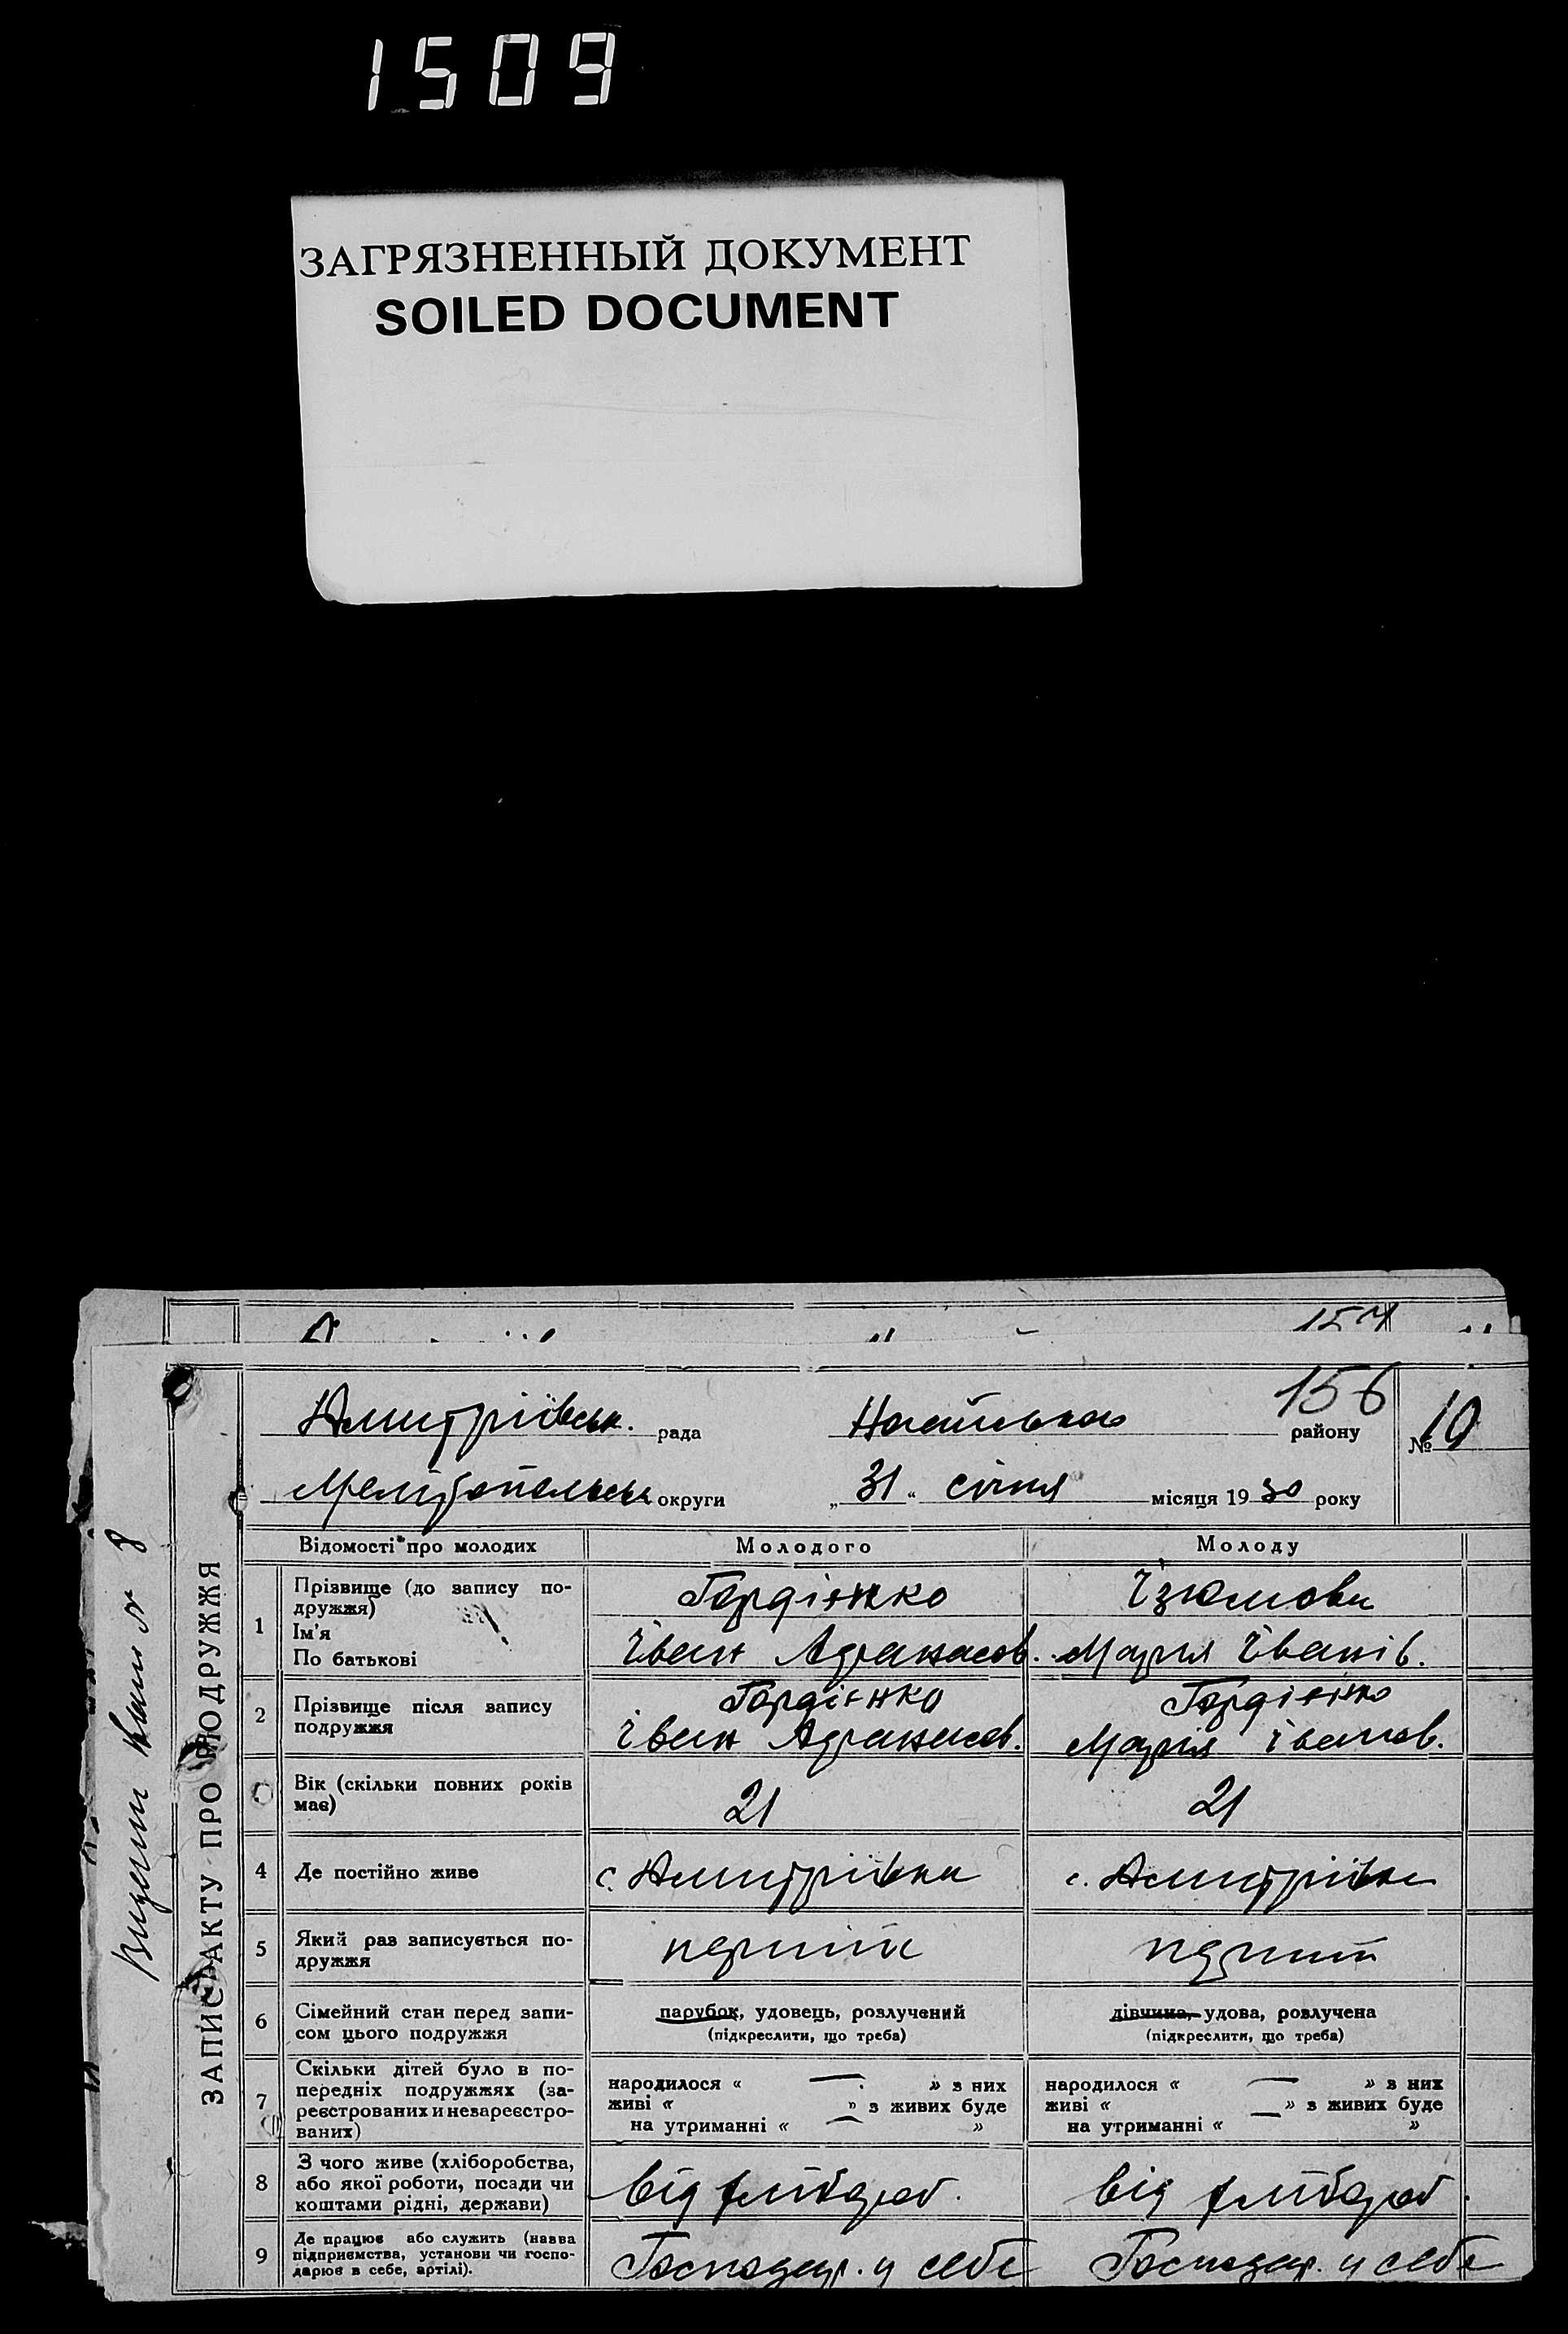 1509
ЗАГРЯЗНЕННЫЙ ДОКУМЕНТ
SOILED DOCUMENT
157
156
Дмитрівськ. рада Ногайського району № 10
Мелітопольськ округи „31“ січня місяця 1930 року
ЗАПИС АКТУ ПРО ПОДРУЖЖЯ
Відомості про молодих Молодого Молоду
1 Прізвище (до запису по-
дружжя)
Ім'я
По батькові
Гордієнко
Іван Афанасов.
Ізюмова
Марія Іванів.
2 Прізвище після запису
подружжя
Гордієнко
Іван Афанасов.
Гордієнко
Марія Іванов.
Вік (скільки повних років
має)
21
21
4 Де постійно живе
с. Дмитрівка
с. Дмитрівка
5 Який раз записується по-
дружжя
перший
перший
6 Сімейний стан перед запи-
сом цього подружжя
парубок, удовець, розлучений
(підкреслити, що треба)
дівчина, удова, розлучена
(підкреслити, що треба)
7 Скільки дітей було в по-
передніх подружжях (за-
реєстрованих и незареєстро-
ваних)
народилося « — » з них
живі « » з живих буде
на утриманні « — »
народилося « — » з них
живі « — » з живих буде
на утриманні « »
8 З чого живе (хліборобства,
або якої роботи, посади чи
коштами рідні, держави)
від хлібороб.
від хлібороб.
9 Де працює або служить (назва
підприємства, установи чи госпо-
дарює в себе, артілі).
Господар. у себе
Господар. у себе